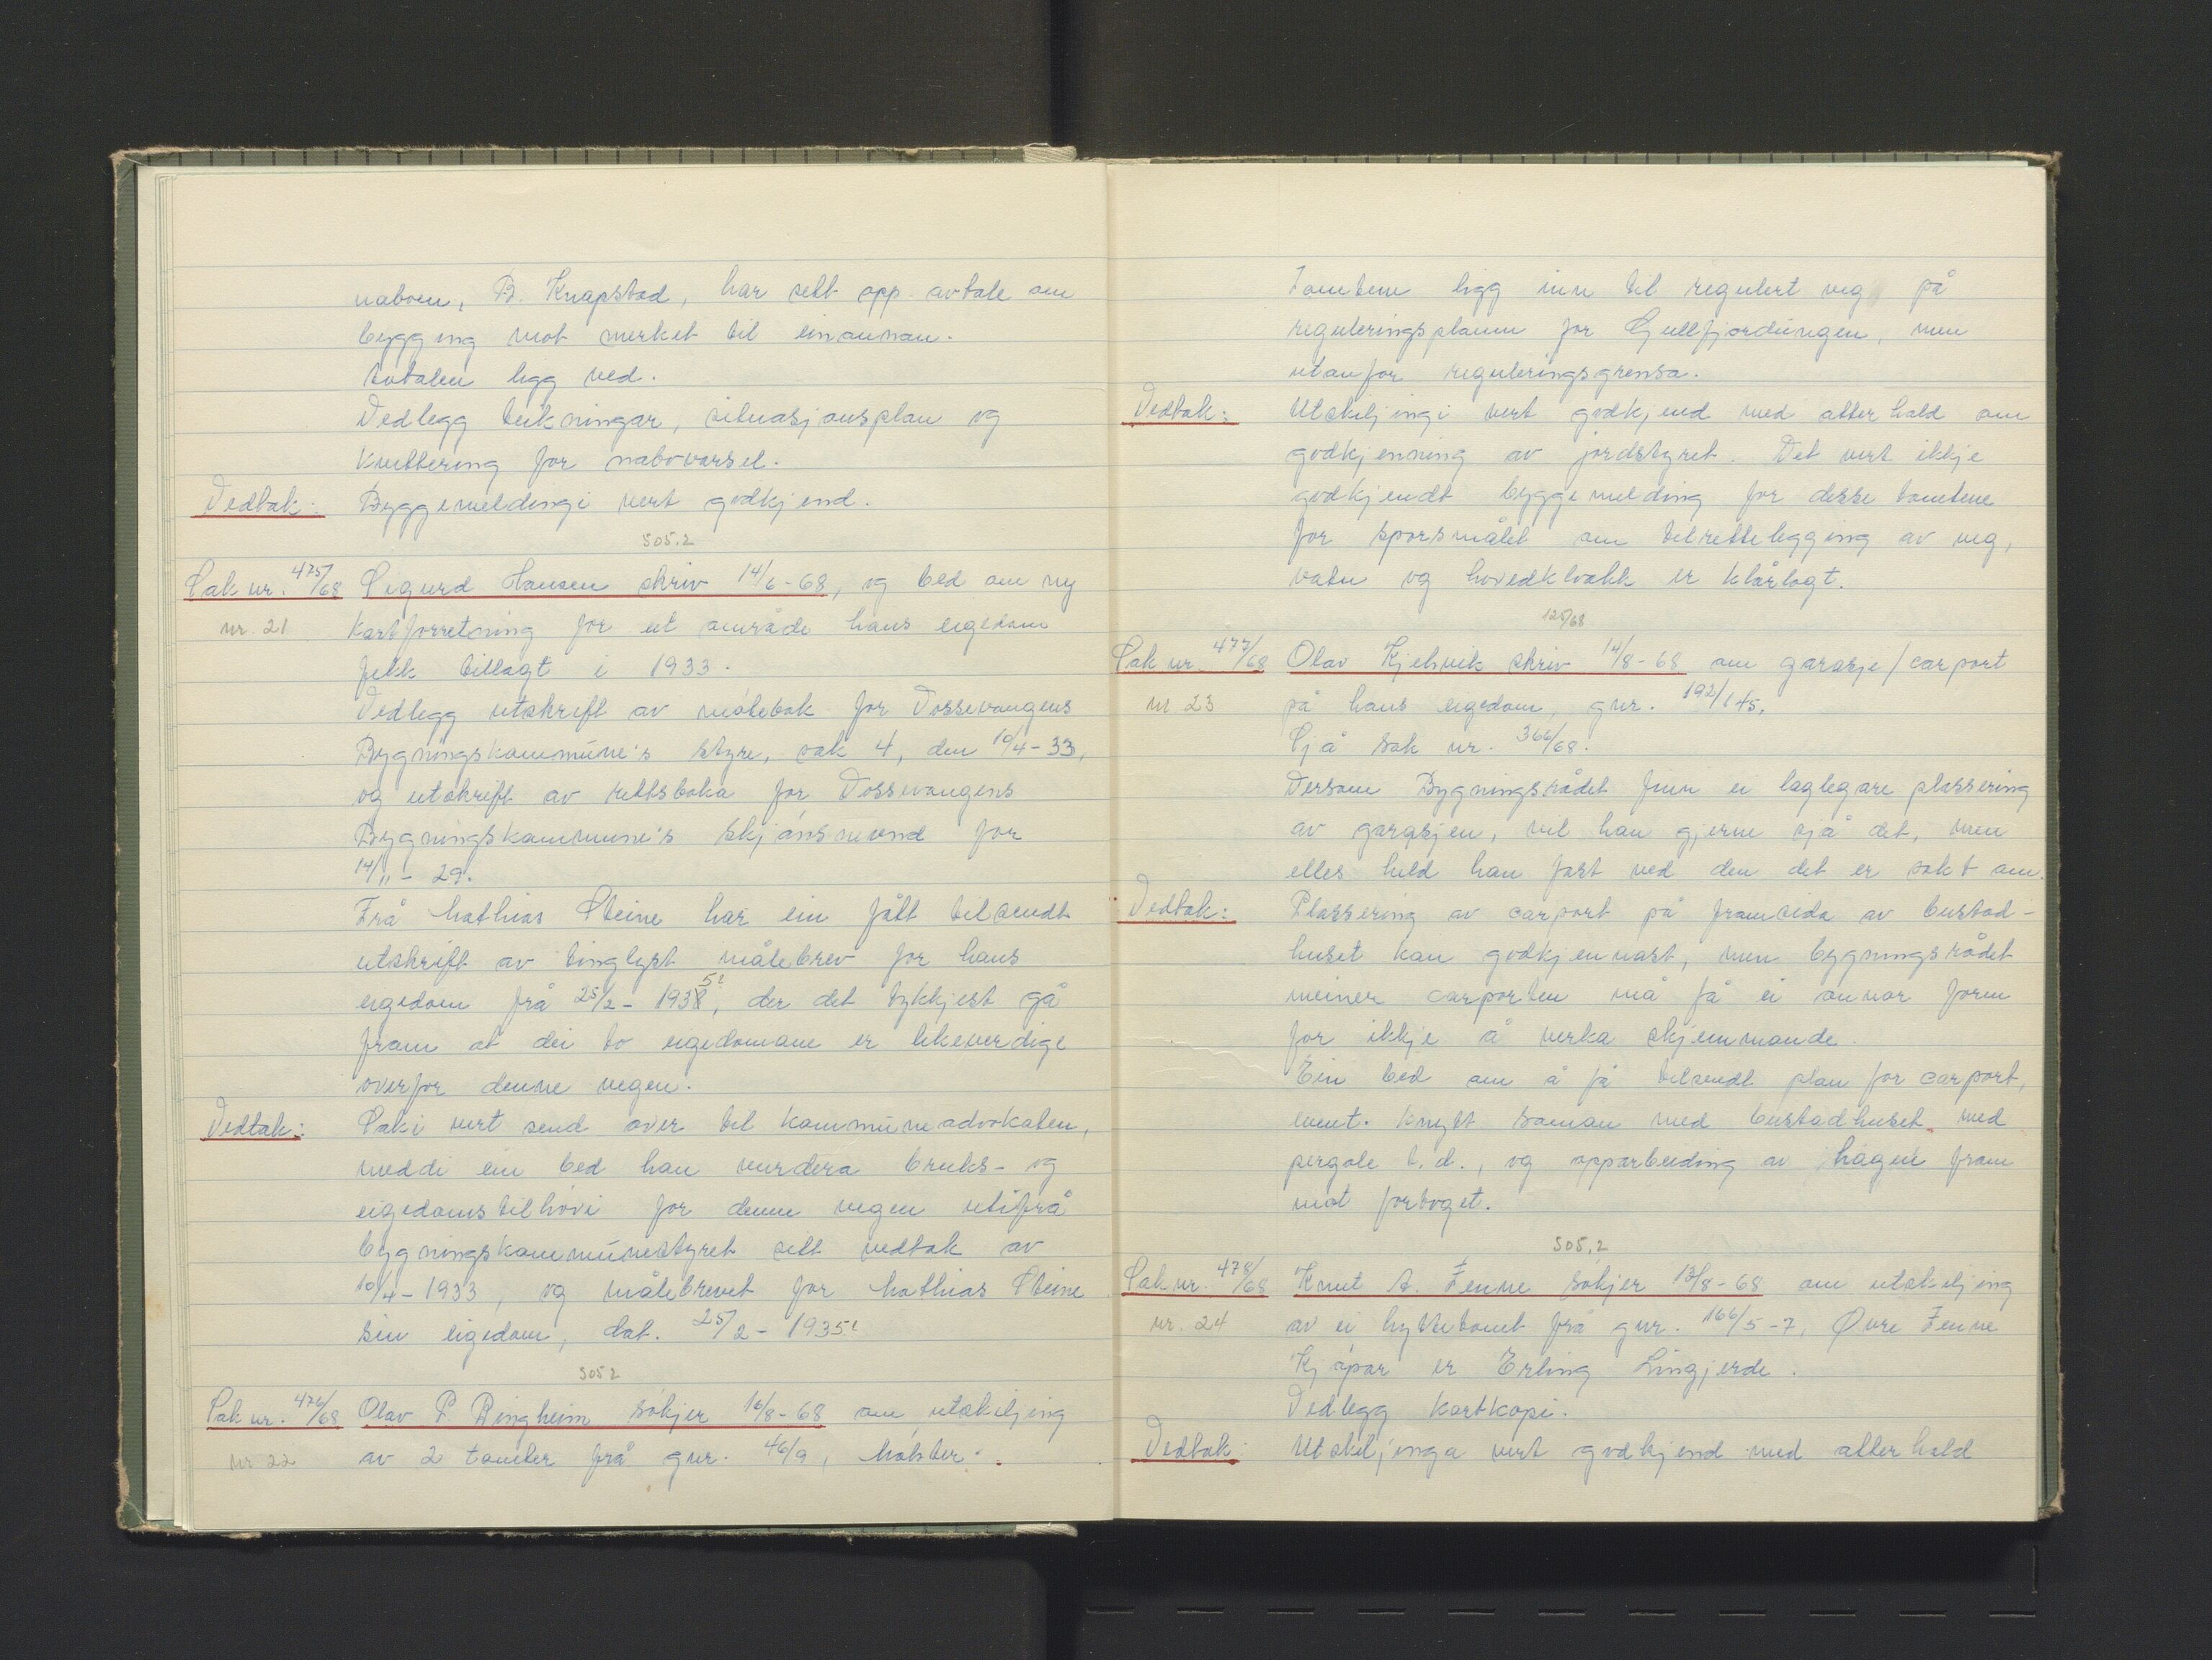 naboen, B. Knapstad, har sett opp avtale om
bygging mot merket til einannan.
Avtalen ligg ved.
Vedlegg teikningar, situasjonsplan og
kvittering for nabovarsel.
Vedtak: Byggemeldingi vert godkjend.
505.2
Sak nr. 475/68 Sigurd Hansen skriv 14/6-68, og bed om ny
nr. 21 kartforretning for eit område hans eigedom
fekk tillagt i 1933.
Vedlegg utskrift av målebok for Vossevangens
Bygningskommune's styre, sak 4, den 10/4-33,
og utskrift av rettsboka for Vossevangens
Bygningskommune's skjønsnemnd for
14/11 - 29.
Frå Mathias Steine har ein fått tilsendt
utskrift av tinglyst målebrev for hans
eigedom frå 25/2 - 1938, der det tykkjest gå
5!
fram at dei to eigedomane er likeverdige
overfor denne vegen.
Vedtak: Saki vert send over til kommuneadvokaten,
meddi ein bed han vurdera bruks- og
eigedomstilhøvi for denne vegen utifrå
bygningskommunestyret sitt vedtak av
10/4 - 1933, og målebrevet for Mathias Steine
sin eigedom, dat. 25/2 - 1935!
505 2
Sak nr. 476/68 Olav P. Ringheim søkjer 16/8-68 om utskiljing
nr 22 av 2 tomter frå gnr. 46/9, Mølster.
Tomtene ligg inn til regulert veg på
reguleringsplanen for Gullfjordungen, men
utanfor reguleringsgrensa.
Vedtak: Utskiljingi vert godkjend med atterhald om
godkjenning av jordstyret. Det vert ikkje
godkjendt byggemelding for desse tomtene
før spørsmålet om tilrettelegging av veg,
vatn og hovedkloakk er klårlagt.
125/68
Sak nr 477/68 Olav Kjelsvik skriv 14/8-68 om garasje/carport
nr 23 på hans eigedom, gnr. 192/145.
Sjå sak nr. 366/68.
Dersom Bygningsrådet finn ei laglegare plassering
av garasjen, vil han gjerne sjå det, men
elles held han fast ved den det er søkt om.
Vedtak: Plassering av carport på framsida av bustad-
huset kan godkjennast, men bygningsrådet
meiner carporten må få ei annor form
for ikkje å verka skjemmande.
Ein bed om å få tilsendt plan for carport,
event. knytt saman med bustadhuset med
pergola t.d., og opparbeiding av hagen fram
mot fortoget.
505.2
Sak nr. 478/68 Knut A. Fenne søkjer 13/8-68 om utskiljing
nr. 24 av ei hyttetomt frå gnr. 166/5-7, Øvre Fenne
Kjøpar er Erling Lingjerde.
Vedlegg kartkopi.
Vedtak: Utskiljinga vert godkjend med atterhald